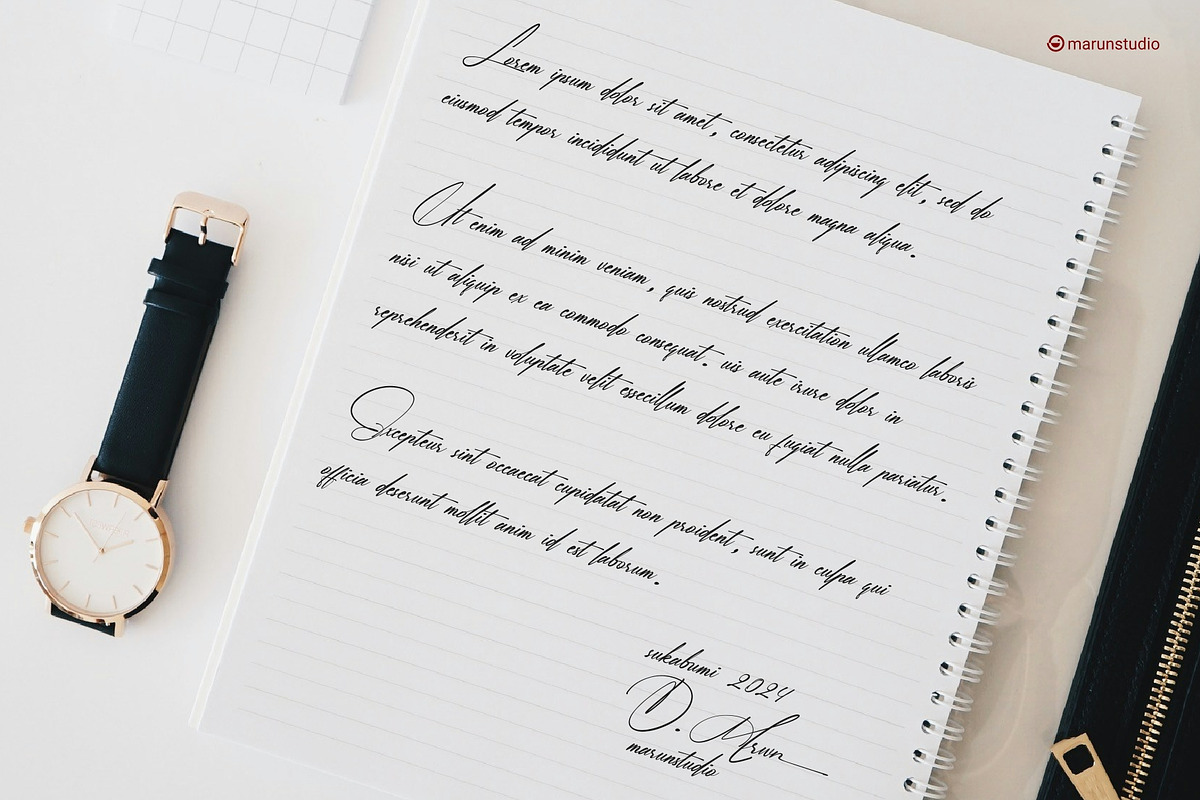 marunstudio
Lorem ipsum dolor sit amet, consectetur adipiscing elit, sed do
eiusmod tempor incididunt ut labore et dolore magna aliqua.
Ut enim ad minim veniam, quis nostrud exercitation ullamco laboris
nisi ut aliquip ex ea commodo consequat. uis aute irure dolor in
reprehenderit in voluptate velit essecillum dolore eu fugiat nulla pariatur.
Excepteur sint occaecat cupidatat non proident, sunt in culpa qui
officia deserunt mollit anim id est laborum.
sukabumi 2024
D.
marunstudio